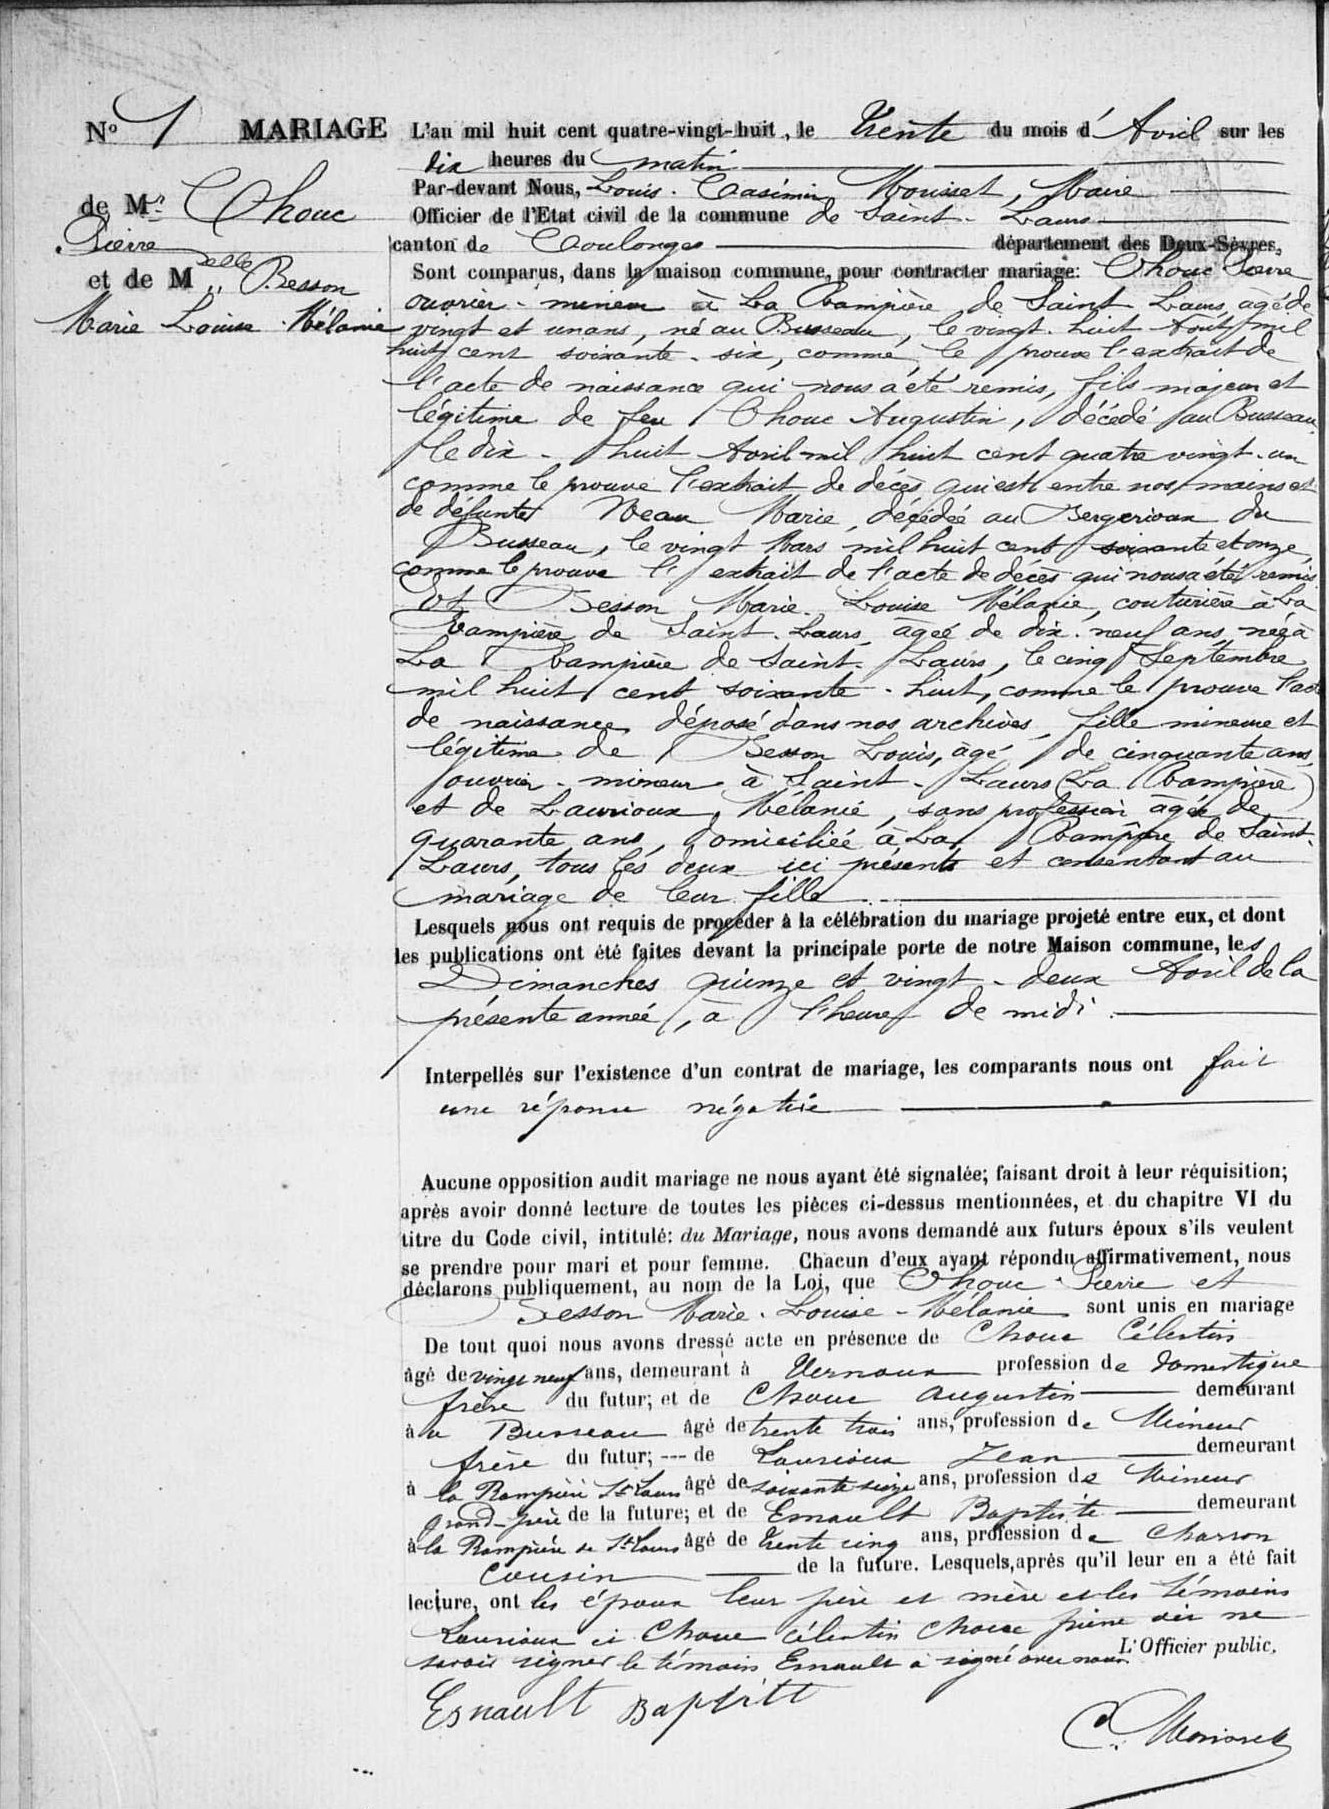 N° 1 MARIAGE
de Mr Choue
Pierre
et de Melle Besson
Marie Louise Mélanie
L'an mil huit cent quatre-vingt-huit, le Trente du mois d'Avril sur les
dix heures du matin
Par-devant Nous, Louis Casimir Mousset, Maire
Officier de l'Etat civil de la commune de Saint-Laurs
canton de Coulonges département des Deux-Sèvres,
Sont comparus, dans la maison commune, pour contracter mariage: Choue Pierre
ouvrier-mineur à La Rampière de Saint Laurs, âgé de
vingt et un ans, né au Busseau, le vingt-huit Août mil
huit cent soixante-six, comme le prouve l'extrait de
l'acte de naissance qui nous a été remis, fils majeur et
légitime de feu Choue Augustin, décédé au Busseau
le dix-huit Avril mil huit cent quatre vingt-un
comme le prouve l'extrait de décès qui est entre nos mains et
de défunte Neau Marie, décédée au Bergerioux du
Busseau, le vingt Mars mil huit cent soixante et onze,
comme le prouve l'extrait de l'acte de décès qui nous a été remis
Et Besson Marie-Louise Mélanie, couturière à La
Rampière de Saint-Laurs, âgée de dix-neuf ans, née à
La Rampière de Saint-Laurs, le cinq Septembre
mil huit cent soixante-huit, comme le prouve l'acte
de naissance déposé dans nos archives, fille mineure et
légitime de Besson Louis, âgé de cinquante ans,
ouvrier-mineur à Saint-Laurs (La Rampière)
et de Laurioux Mélanie, sans profession âgée de
quarante ans, domiciliée à La Rampière de Saint-
Laurs, tous les deux ici présents et consentant au
mariage de leur fille
Lesquels nous ont requis de procéder à la célébration du mariage projeté entre eux, et dont
les publications ont été faites devant la principale porte de notre Maison commune, les
Dimanches quinze et vingt-deux Avril de la
présente année, à l'heure de midi.
Interpellés sur l'existence d'un contrat de mariage, les comparants nous ont fait
une réponse négative
Aucune opposition audit mariage ne nous ayant été signalée; faisant droit à leur réquisition;
après avoir donné lecture de toutes les pièces ci-dessus mentionnées, et du chapitre VI du
titre du Code civil, intitulé: du Mariage, nous avons demandé aux futurs époux s'ils veulent
se prendre pour mari et pour femme. Chacun d'eux ayant répondu affirmativement, nous
déclarons publiquement, au nom de la Loi, que Choue Pierre et
Besson Marie-Louise-Mélanie sont unis en mariage
De tout quoi nous avons dressé acte en présence de Choue Célestin
âgé de vingt neuf ans, demeurant à Vernoux profession de domestique
frère du futur; et de Choue Augustin demeurant
à u Busseau âgé de trente trois ans, profession de Mineur
frère du futur; --- de Laurioux Jean demeurant
à la Rampière St Laurs âgé de soixante seize ans, profession de Mineur
grand-père de la future; et de Esnault Baptiste demeurant
à la Rampière de St Laurs âgé de trente cinq ans, profession de Charron
Cousin de la future. Lesquels, après qu'il leur en a été fait
lecture, ont les époux leur père et mère et les témoins
Laurioux et Choue Célestin Choue dit ne
savoir signer le témoin Esnault a signé avec nous.
L'Officier public,
Esnault Baptist
C. Mousset